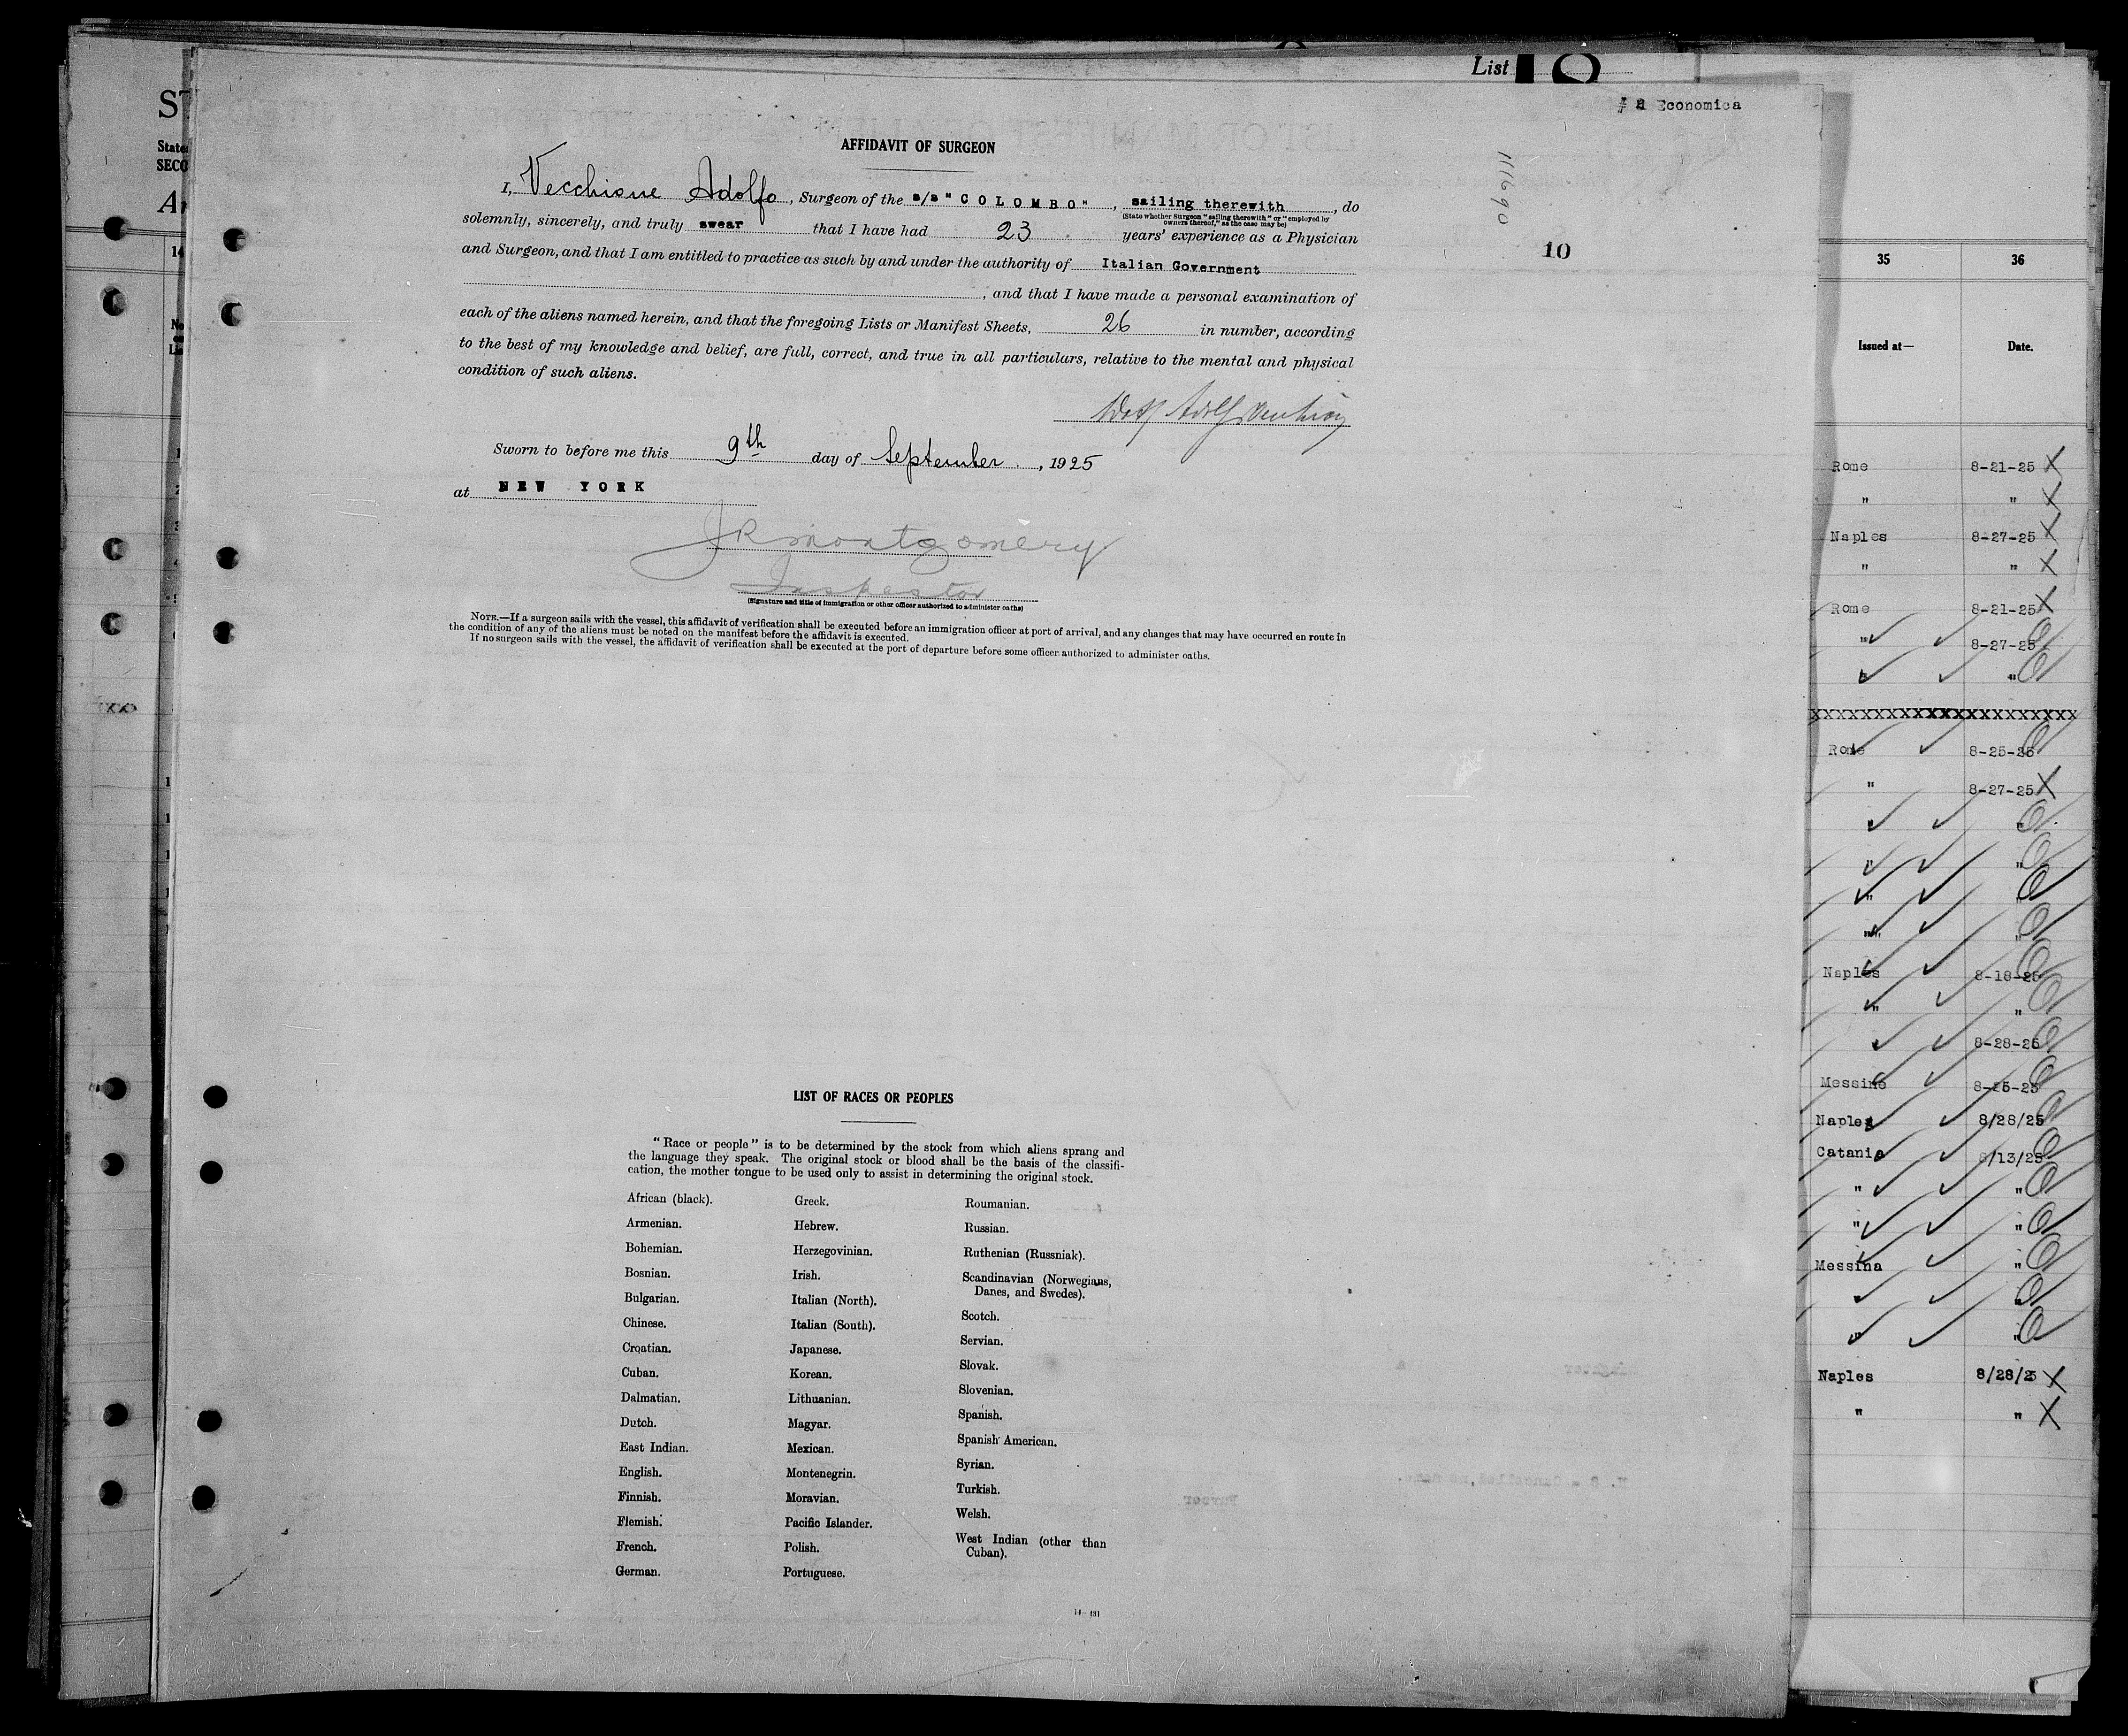 List 18
Economica
AFFIDAVIT OF SURGEON
I, Vecchione Adolfo, Surgeon of the s/s "COLOMBO", sailing therewith, do
(State whether Surgeon "sailing therewith" or "employed by owners thereof," as the case may be)
solemnly, sincerely, and truly swear that I have had 23 years' experience as a Physician
and Surgeon, and that I am entitled to practice as such by and under the authority of Italian Government
, and that I have made a personal examination of
each of the aliens named herein, and that the foregoing Lists or Manifest Sheets, 26 in number, according
to the best of my knowledge and belief, are full, correct, and true in all particulars, relative to the mental and physical
condition of such aliens.
Sworn to before me this 9th day of September, 1925
at NEW YORK
JR Montgomery
Inspector
(Signature and title of immigration or other officer authorized to administer oaths)
NOTE.—If a surgeon sails with the vessel, this affidavit of verification shall be executed before an immigration officer at port of arrival, and any changes that may have occurred en route in
the condition of any of the aliens must be noted on the manifest before the affidavit is executed.
If no surgeon sails with the vessel, the affidavit of verification shall be executed at the port of departure before some officer authorized to administer oaths.
111690
10
LIST OF RACES OR PEOPLES
"Race or people" is to be determined by the stock from which aliens sprang and
the language they speak. The original stock or blood shall be the basis of the classifi-
cation, the mother tongue to be used only to assist in determining the original stock.
African (black).
Armenian.
Bohemian.
Bosnian.
Bulgarian.
Chinese.
Croatian.
Cuban.
Dalmatian.
Dutch.
East Indian.
English.
Finnish.
Flemish.
French.
German.
Greek.
Hebrew.
Herzegovinian.
Irish.
Italian (North).
Italian (South).
Japanese.
Korean.
Lithuanian.
Magyar.
Mexican.
Montenegrin.
Moravian.
Pacific Islander.
Polish.
Portuguese.
Roumanian.
Russian.
Ruthenian (Russniak).
Scandinavian (Norwegians,
Danes, and Swedes).
Scotch.
Servian.
Slovak.
Slovenian.
Spanish.
Spanish American.
Syrian.
Turkish.
Welsh.
West Indian (other than
Cuban).
35 36
Issued at— Date.
Rome 8-21-25 X
" " X
Naples 8-27-25 X
" " X
Rome 8-21-25 X
" 8-27-25
" "
XXXXXXXXXXXXXXXXXXXXXX
Rome 8-25-25
" 8-27-25 X
" "
" "
" "
" "
Naples 8-18-25
" "
" 8-28-25
Messine 8-25-25
Naples 8/28/25
Catania 8/13/25
" "
" "
Messina "
" "
" "
Naples 8/28/25 X
" " X